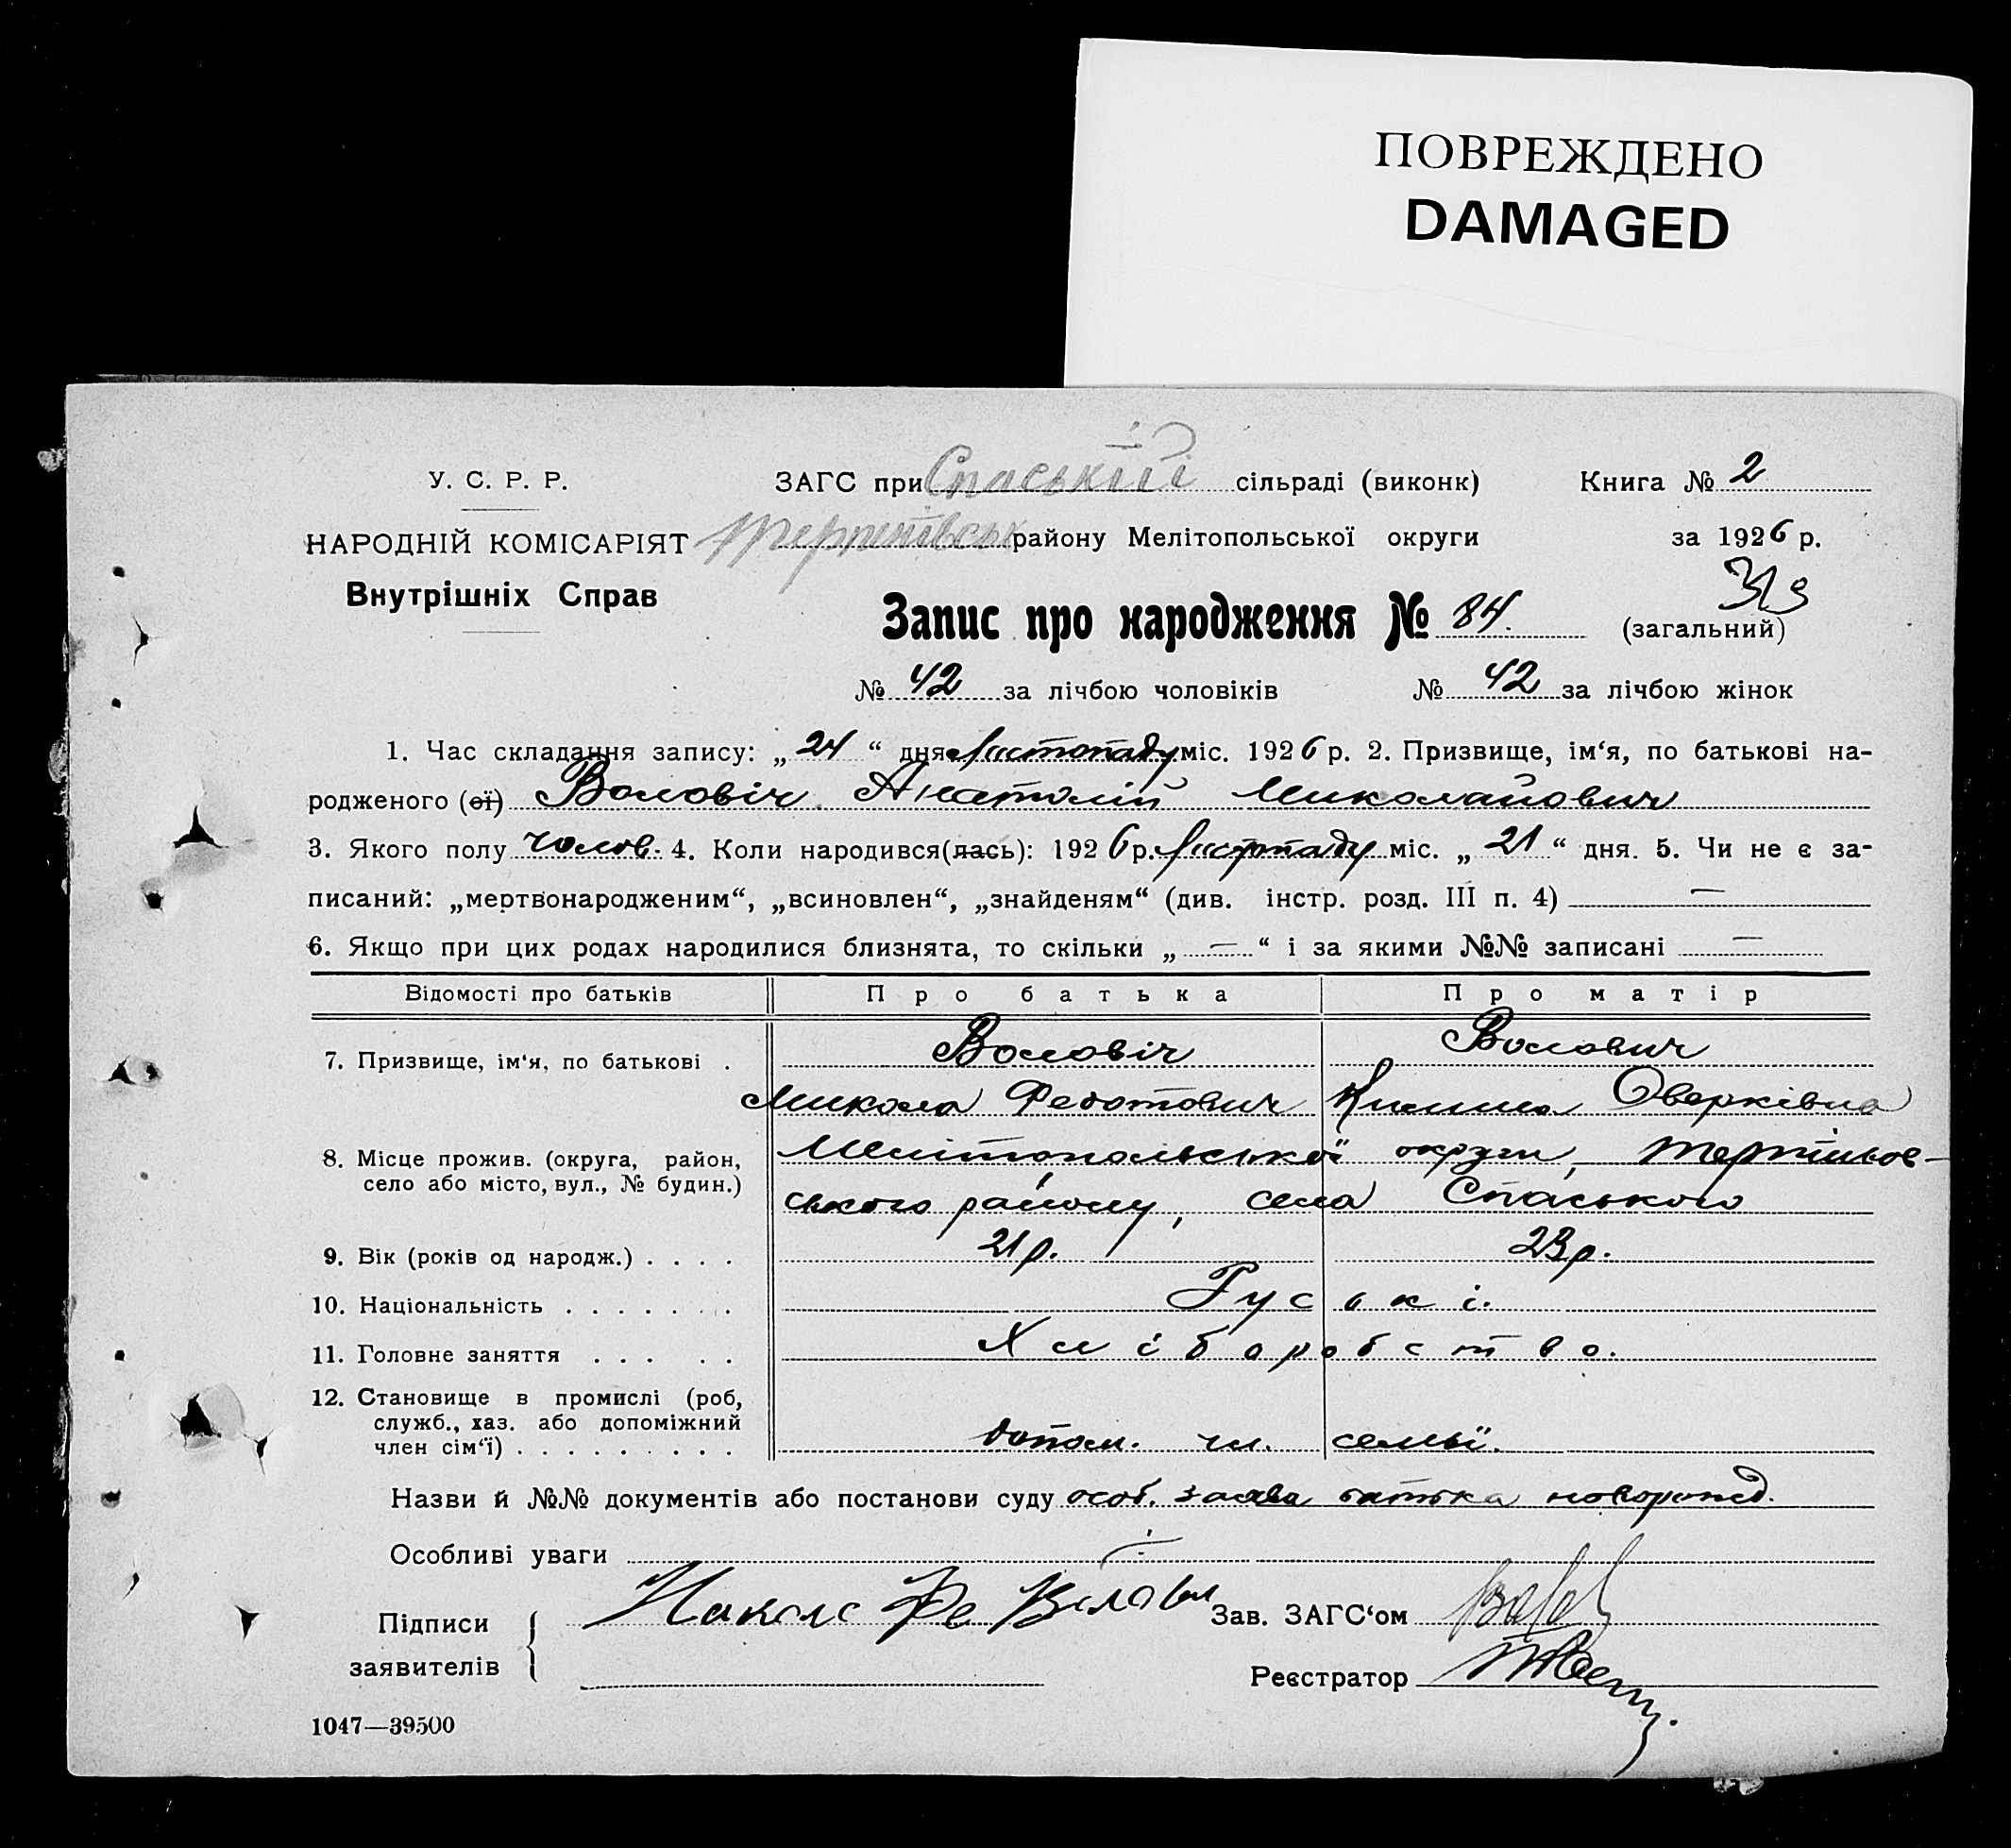 ПОВРЕЖДЕНО
DAMAGED
У. С. Р. Р.
ЗАГС при Спаській сільраді (виконк)
Книга № 2
НАРОДНІЙ КОМІСАРІЯТ
Терпенівськ району Мелітопольської округи
за 1926 р.
Внутрішніх Справ
313
Запис про народження № 84. (загальний)
№ 42 за лічбою чоловіків № 42 за лічбою жінок
1. Час складання запису: „ 24 “ дня Листопаду міс. 1926 р. 2. Призвище, ім‘я, по батькові на-
родженого (ої) Воловіч Анатолій Миколайович
3. Якого полу чолов. 4. Коли народився(лась): 1926 р. Листопаду міс. „ 21 “ дня. 5. Чи не є за-
писаний: „мертвонародженим“, „всиновлен“, „знайденям“ (див. інстр. розд. III п. 4) —
6. Якщо при цих родах народилися близнята, то скільки „ — “ і за якими №№ записані —
Відомості про батьків Про батька Про матір
7. Призвище, ім‘я, по батькові . Воловіч Волович
Микола Федотович Килина Оверківна
8. Місце прожив. (округа, район, село або місто, вул., № будин.) Мелітопольської округи, Терпіньов-
ського району, села Спаського
9. Вік (років од народж.) . . . . 21 р. 23 р.
10. Національність . . . . . . . Руські.
11. Головне заняття . . . . . Хліборобство.
12. Становище в промислі (роб,
служб., хаз. або допоміжний
член сім‘ї) . . . . . . . . . допом. чл. семьї.
Назви й №№ документів або постанови суду особ. заява батька новорожд.
Особливі уваги
Підписи
заявителів
Зав. ЗАГС‘ом
Реєстратор
1047—39500